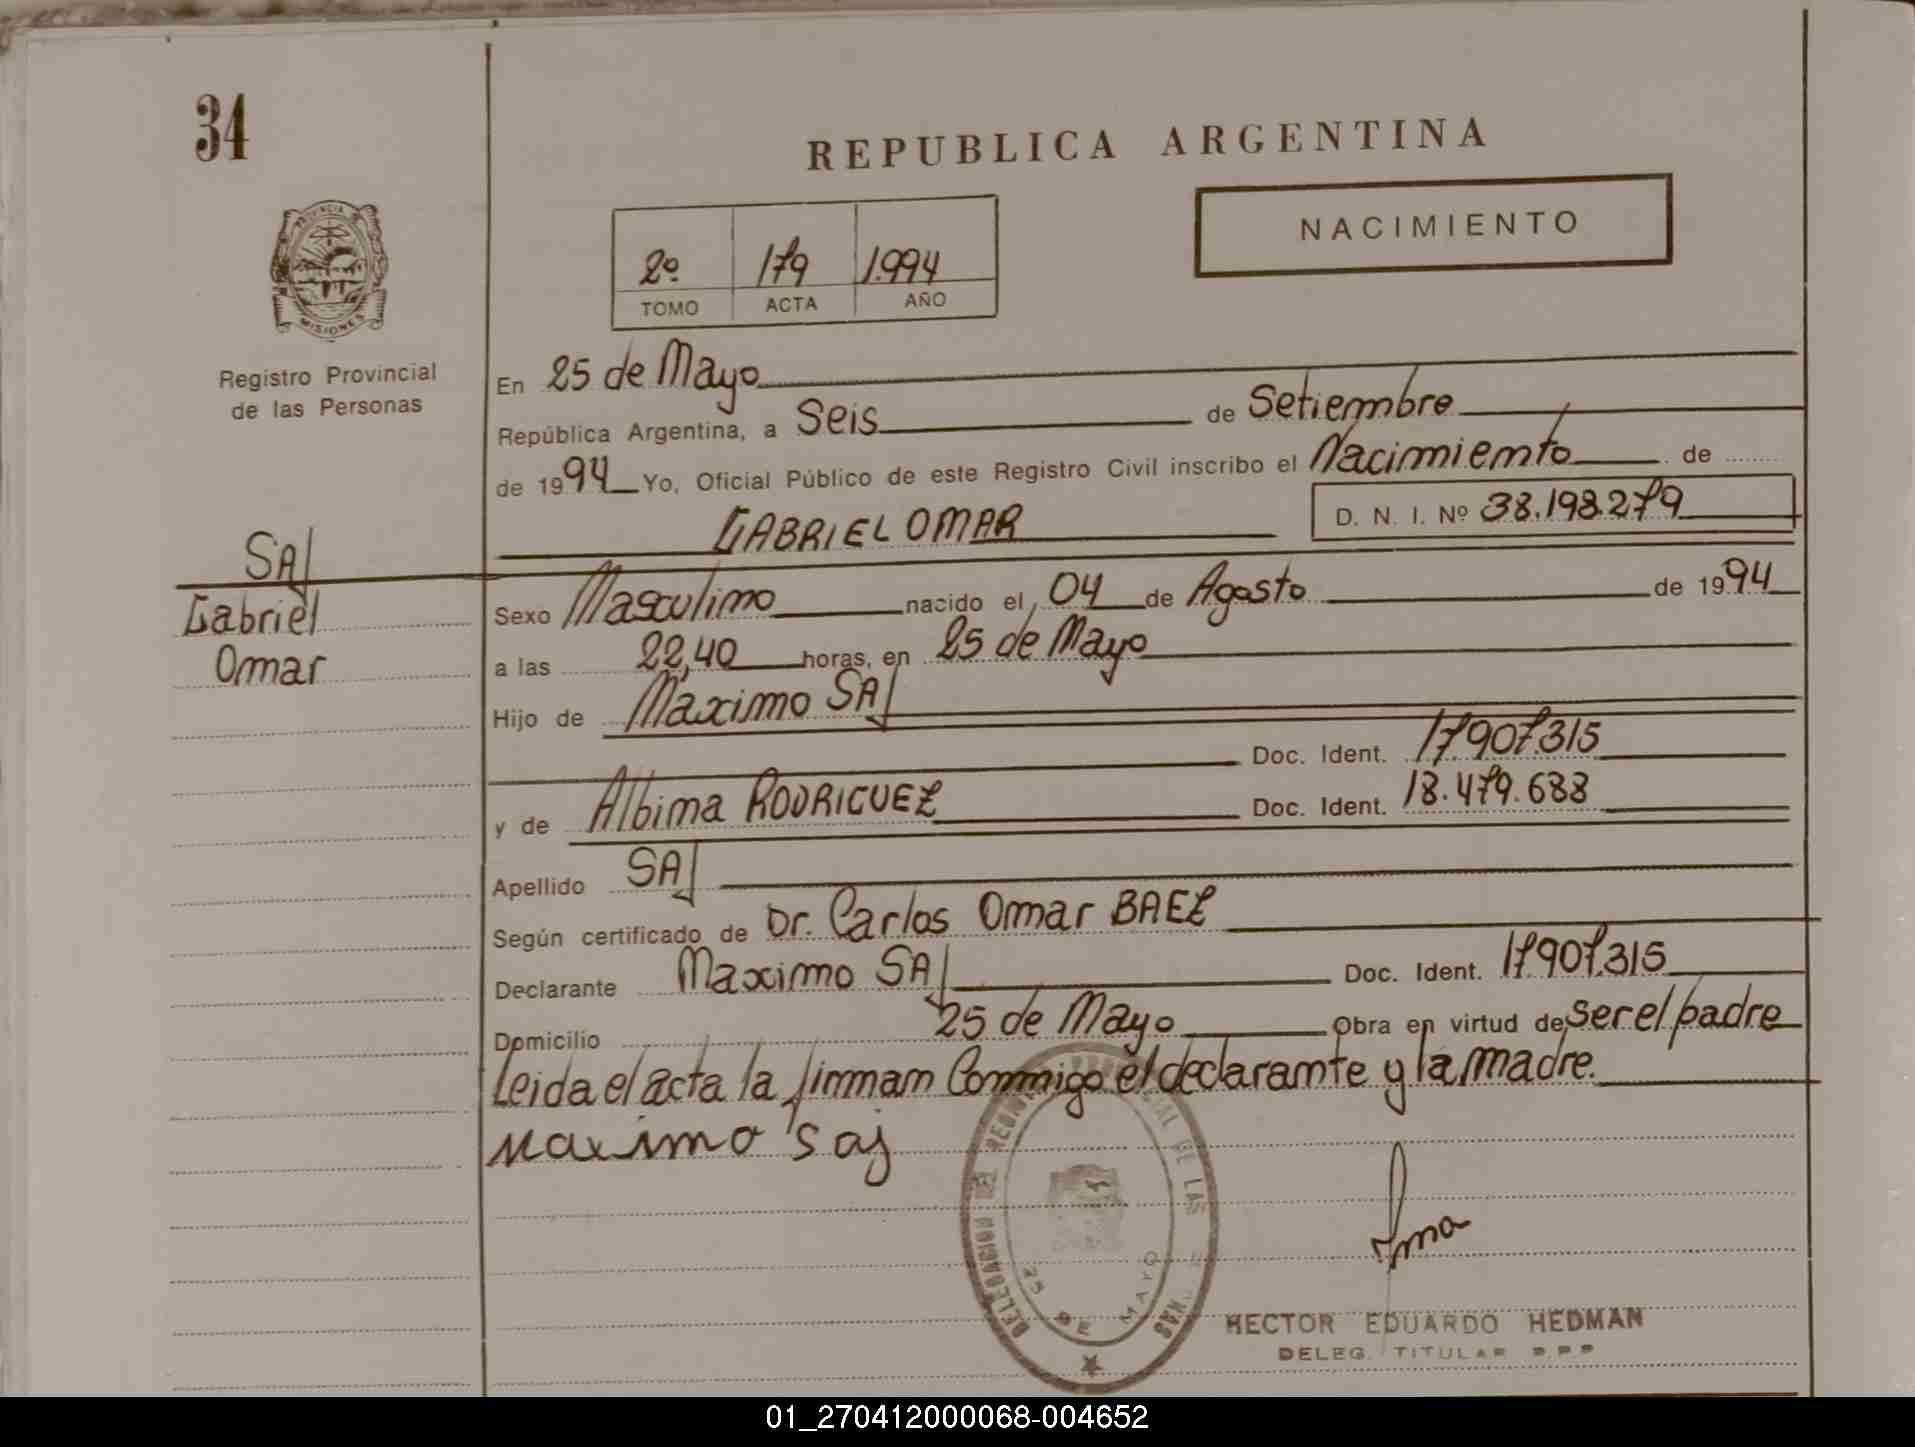 34
REPUBLICA ARGENTINA
NACIMIENTO
2º 179 1.994
TOMO ACTA AÑO
PROVINCIA DE
MISIONES
Registro Provincial
de las Personas
En 25 de Mayo
República Argentina, a Seis de Setiembre
de 1994 Yo, Oficial Público de este Registro Civil inscribo el Nacimiento de
GABRIEL OMAR D. N. I. Nº 38.198.279
SAJ
Gabriel
Omar
Sexo Masculino nacido el 04 de Agosto de 1994
a las 22,40 horas, en 25 de Mayo
Hijo de Maximo SAJ
Doc. Ident. 17.907.315
y de Albina RODRIGUEZ Doc. Ident. 18.479.688
Apellido SAJ
Según certificado de Dr. Carlos Omar BAEZ
Declarante Maximo SAJ Doc. Ident. 17.907.315
Domicilio 25 de Mayo Obra en virtud de ser el padre
Leida el acta la firman Conmigo el declarante y la madre.
Maximo Saj
25 DE MAYO
HECTOR EDUARDO HEDMAN
DELEG. TITULAR
01_270412000068-004652